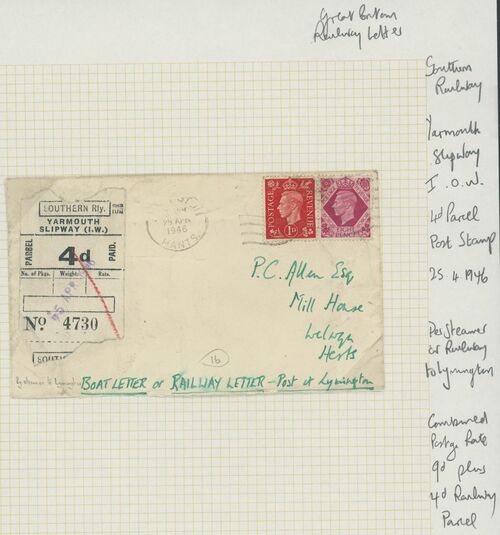 Great Britain
Railway Letter
Southern
Railway
Yarmouth
Slipway
I.O.W.
4d Parcel
Post Stamp
25.4.1946
Per Steamer
or Railway
to Lymington
Combined
Postge Rate
9d plus
4d Railway
Parcel
SOUTHERN Rly.
YARMOUTH
SLIPWAY (I.W.)
PARCEL
4d
PAID.
No. of Pkgs. Weight Rate.
25 APR 1946
No 4730
25 APR
1946
HANTS
POSTAGE
REVENUE
1D
P.C. Allen Esq
Mill House
Welwyn
Herts
16
BOAT LETTER or RAILWAY LETTER - Post at Lymington